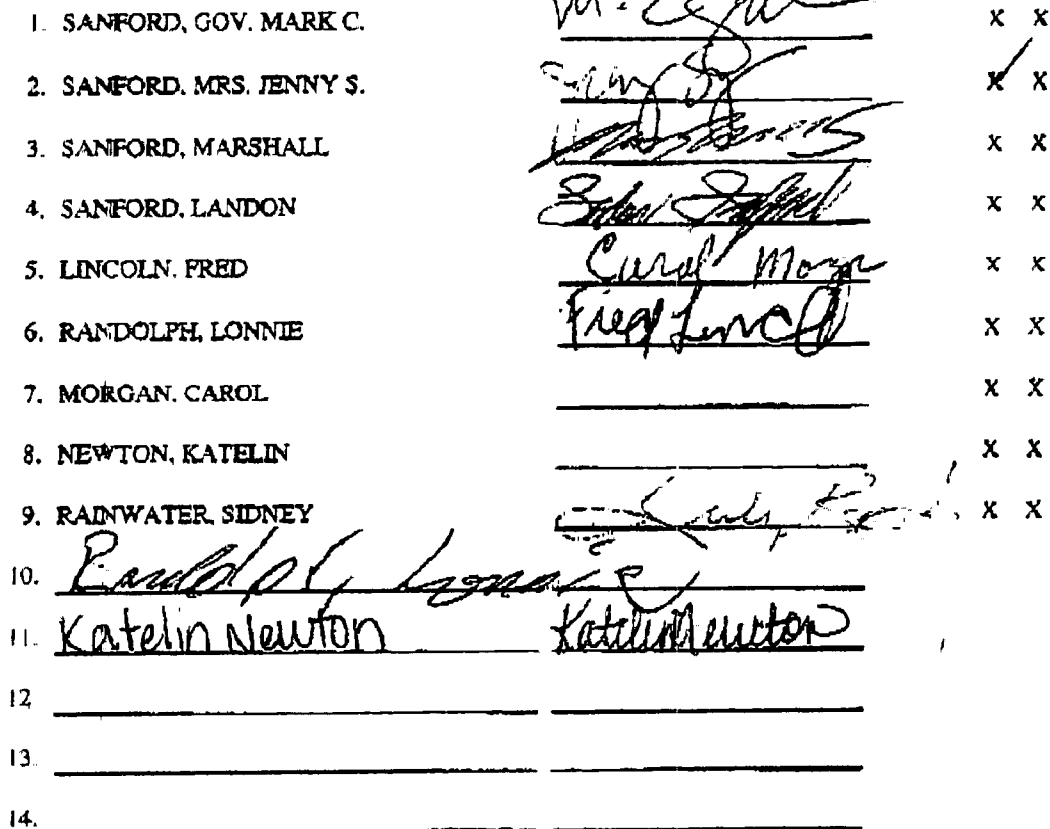 1. SANFORD, GOV. MARK C. X X
2. SANFORD. MRS. JENNY S. X X
3. SANFORD, MARSHALL X X
4. SANFORD, LANDON X X
5. LINCOLN. FRED Carol X X
6. RANDOLPH, LONNIE Fred X X
7. MORGAN. CAROL X X
8. NEWTON, KATELIN X X
9. RAINWATER, SIDNEY X X
10.
11. Katelin Newton Katelin Newton
12
13.
14.